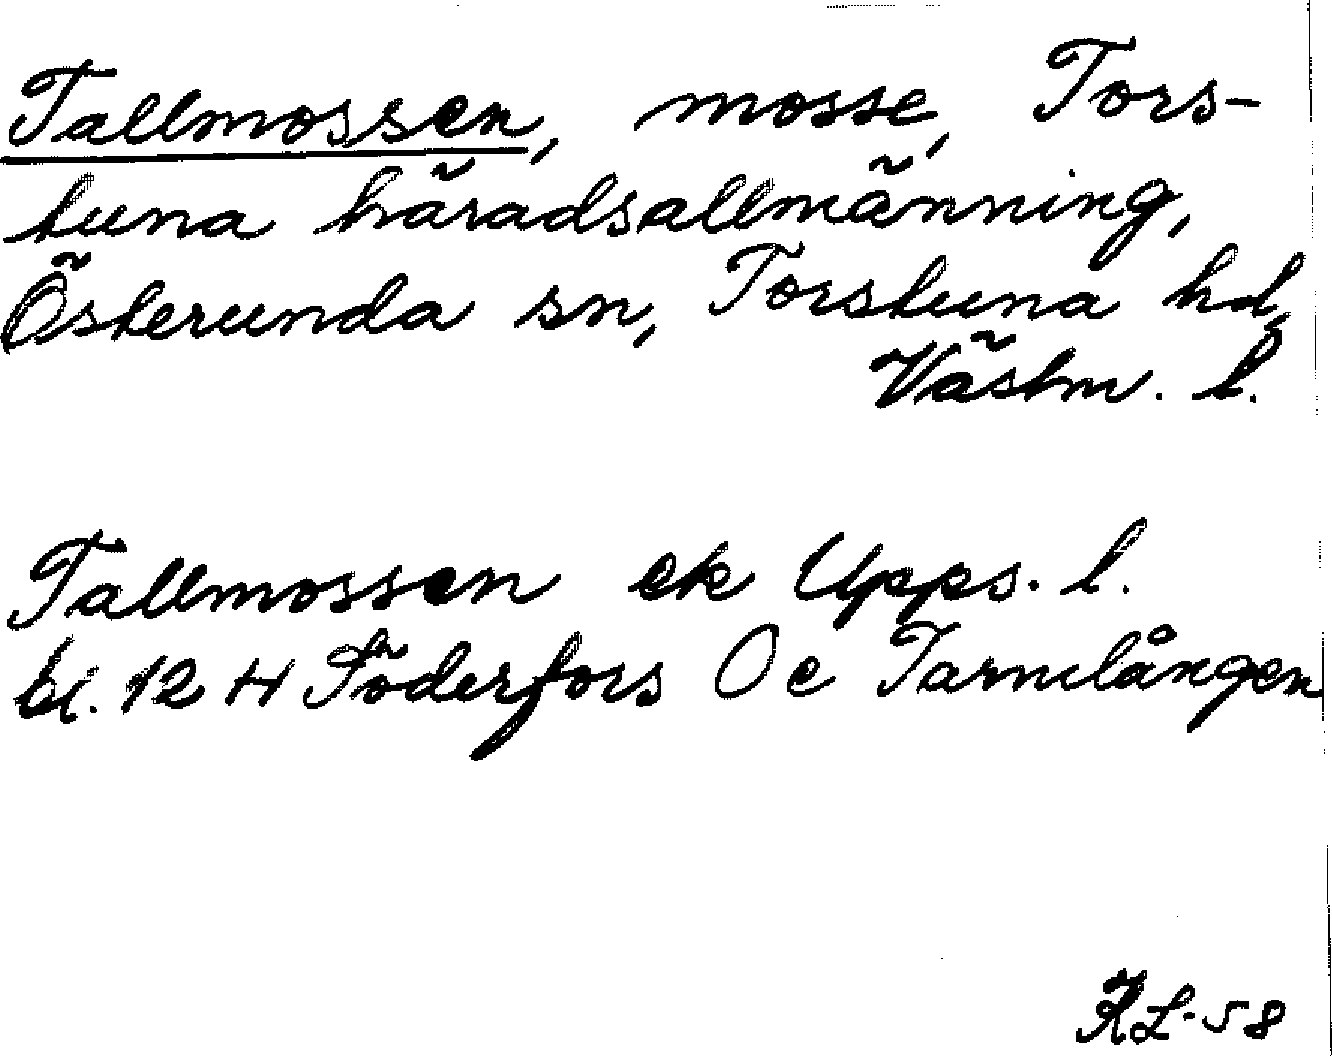 Tallmossen, mosse, Tors-
tuna häradsallmänning,
Österunda sn, Torstuna hd,
Västm. l.
Tallmossen ek Upps. l.
bl. 12 H Söderfors Oc Tarmlången
KL-58